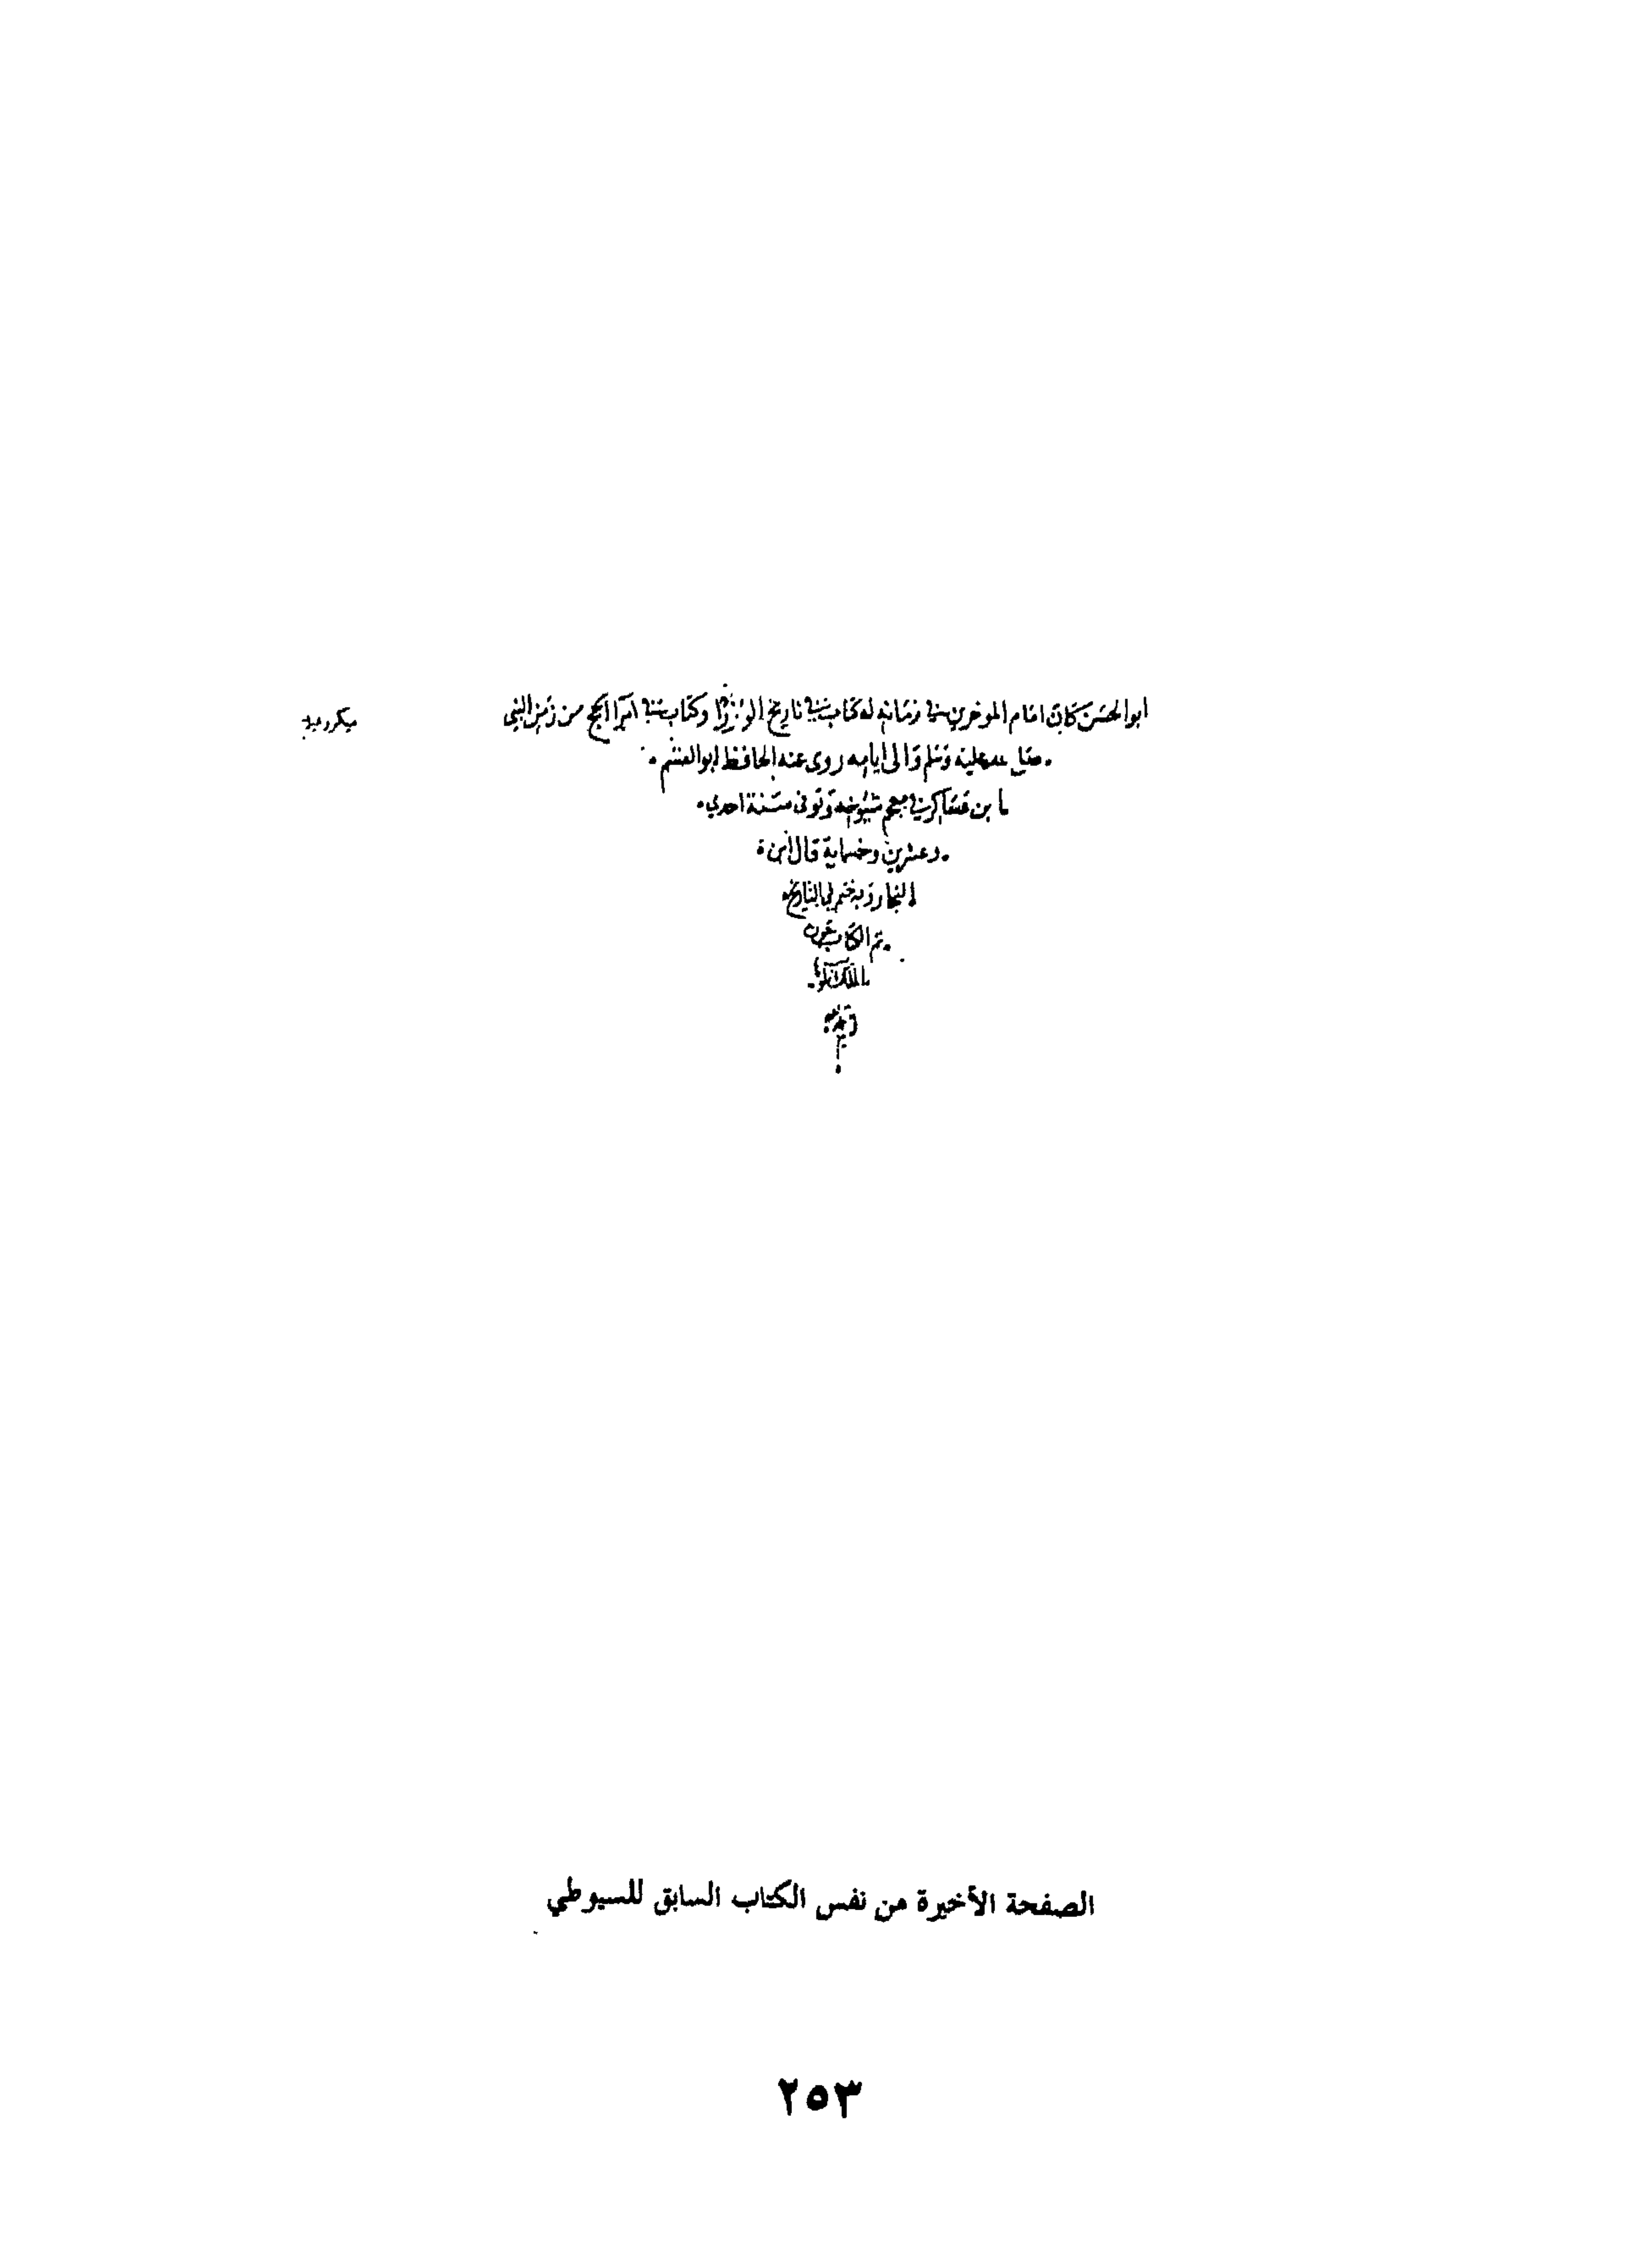 ابو الحسن كان امام المورخين في زمانه له كتاب في تاريخ الوزرا وكتاب في امرا الحج من زمن النبي
صلى الله عليه وسلم والى ايامه روى عنه الحافظ ابو القسم
ابن عساكر في معجم شيوخه وتوفى سنة احدى
وعشرين وخمسماية قال ابن
النجار وبه ختم لي التاريخ
تم الكتاب بعون
الملك
الصفحة الأخيرة من نفس الكتاب السابق للسيوطي
٢٥٣